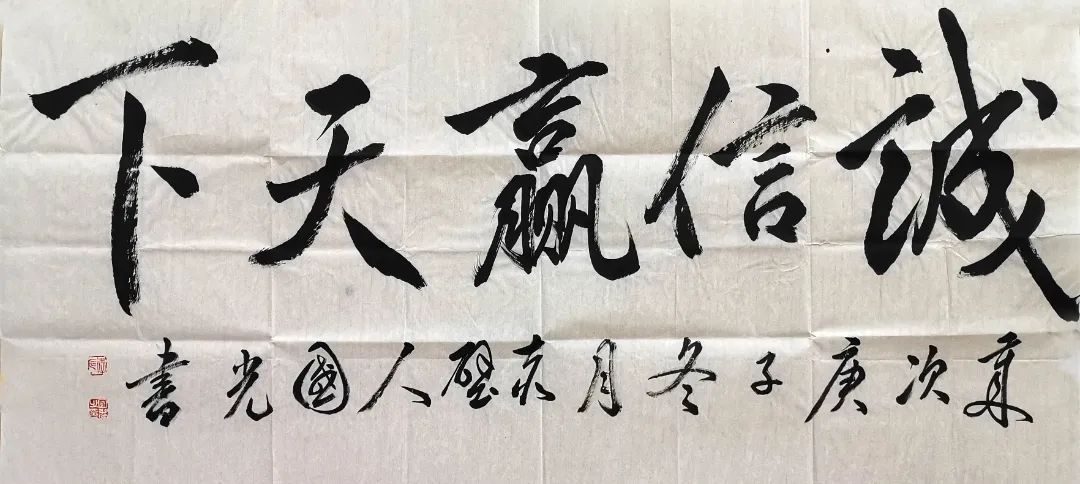 誠信贏天下
歲次庚子冬月赤壁人國光書